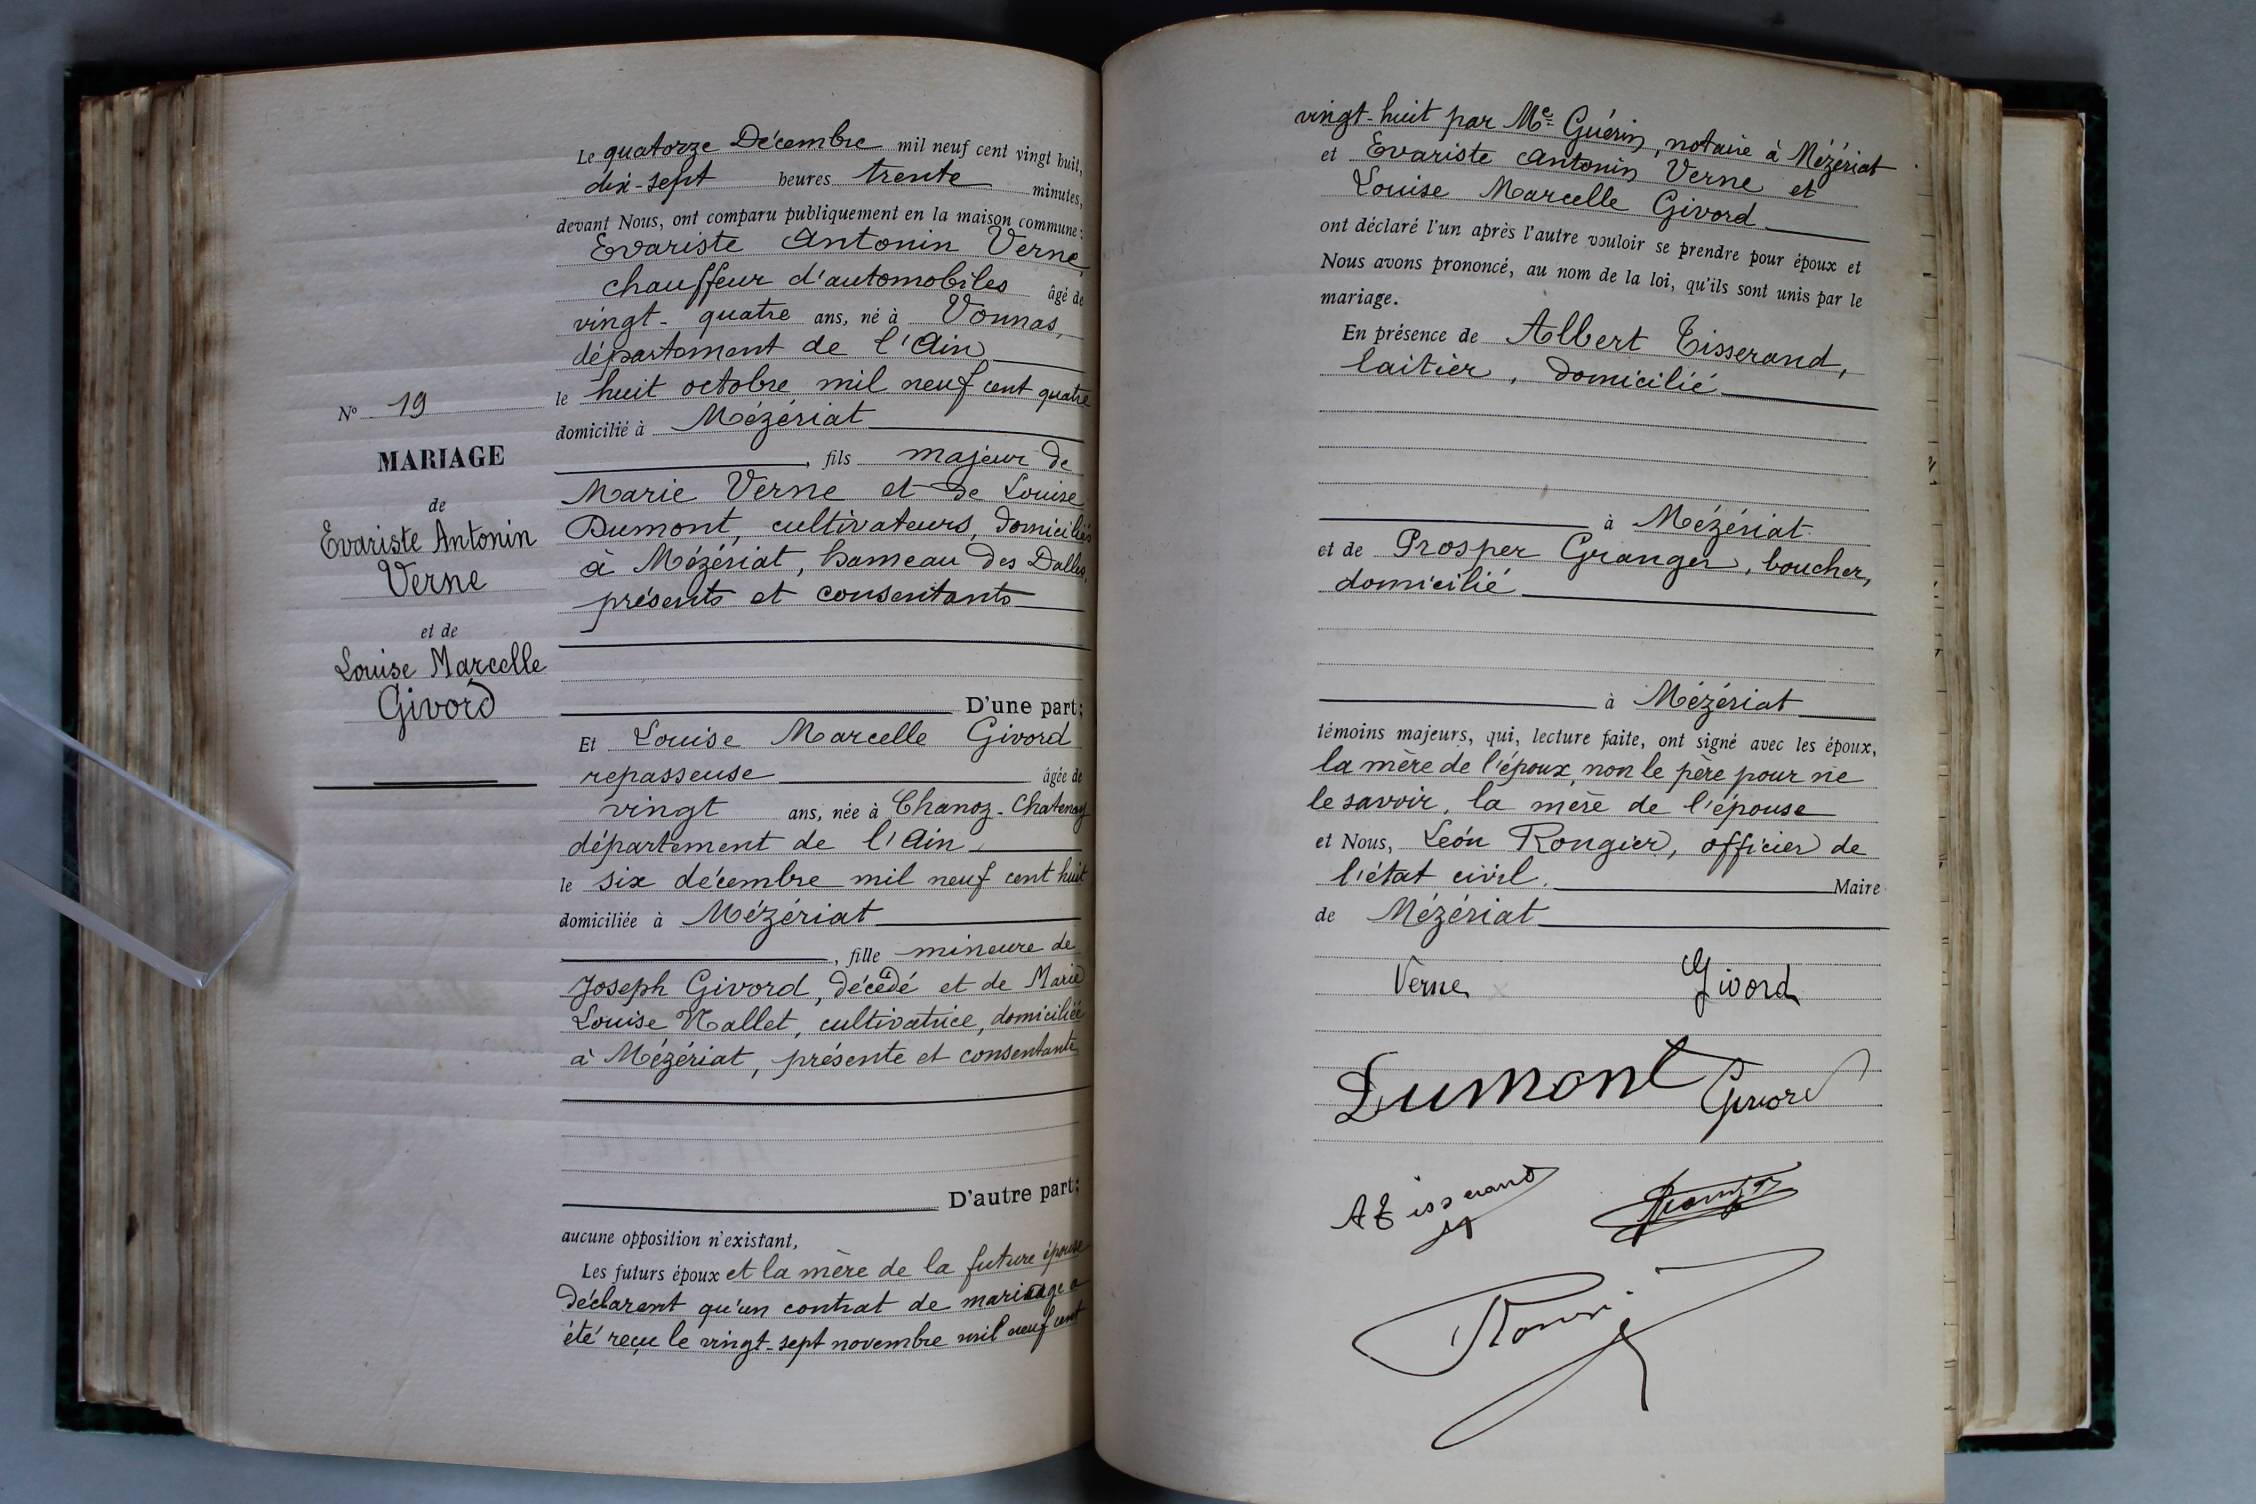 N° 19
MARIAGE
de
Evariste Antonin
Verne
et de
Louise Marcelle
Givord
Le quatorze Décembre mil neuf cent vingt huit,
dix-sept heures trente minutes,
devant Nous, ont comparu publiquement en la maison commune :
Evariste Antonin Verne,
chauffeur d'automobiles âgé de
vingt-quatre ans, né à Vonnas,
département de l'Ain,
le huit octobre mil neuf cent quatre
domicilié à Mézériat
, fils majeur de
Marie Verne et de Louise
Dumont, cultivateurs, domiciliés
à Mézériat, hameau des Dalles,
présents et consentants
D'une part;
Et Louise Marcelle Givord
repasseuse âgée de
vingt ans, née à Chanoz-Chatenay
département de l'Ain,
le six décembre mil neuf cent huit
domiciliée à Mézériat
, fille mineure de
Joseph Givord, décédé et de Marie
Louise Nallet, cultivatrice, domiciliée
à Mézériat, présente et consentante
D'autre part;
aucune opposition n'existant,
Les futurs époux et la mère de la future épouse
déclarent qu'un contrat de mariage a
été reçu le vingt-sept novembre mil neuf cent
vingt-huit par Me Guérin, notaire à Mézériat
et Evariste Antonin Verne et
Louise Marcelle Givord
ont déclaré l'un après l'autre vouloir se prendre pour époux et
Nous avons prononcé, au nom de la loi, qu'ils sont unis par le
mariage.
En présence de Albert Tisserand,
laitier, domicilié
à Mézériat
et de Prosper Granger, boucher,
domicilié
à Mézériat
témoins majeurs, qui, lecture faite, ont signé avec les époux,
la mère de l'époux, non le père pour ne
le savoir, la mère de l'épouse
et Nous, Léon Rongier, officier de
l'état civil. Maire
de Mézériat
Verne Givord
Dumont Givord
A Tisserand